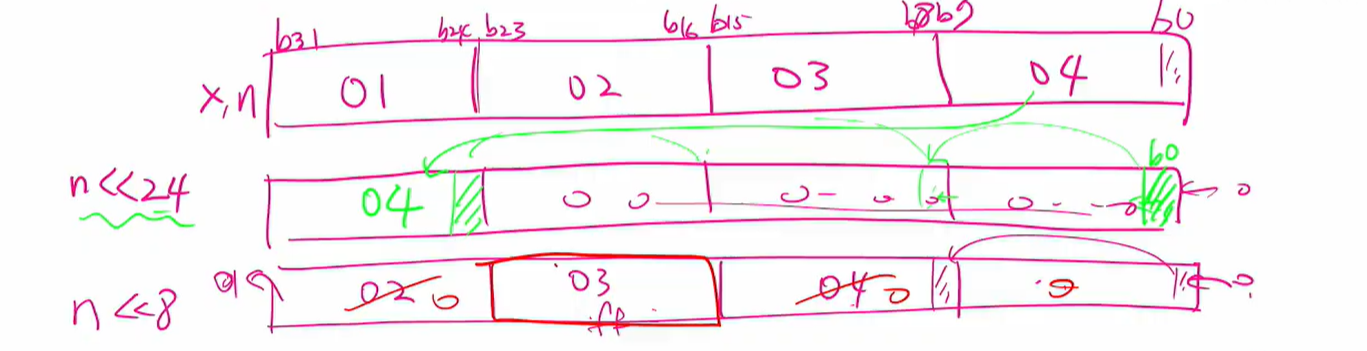 b31 b24 b23 b16 b15 b8 b7 b0
x,n 01 02 03 04
b0
n<<24 04 0 0 0 0 0 0 0 0
n<<8 02 0 03 04 0 0 0
ff